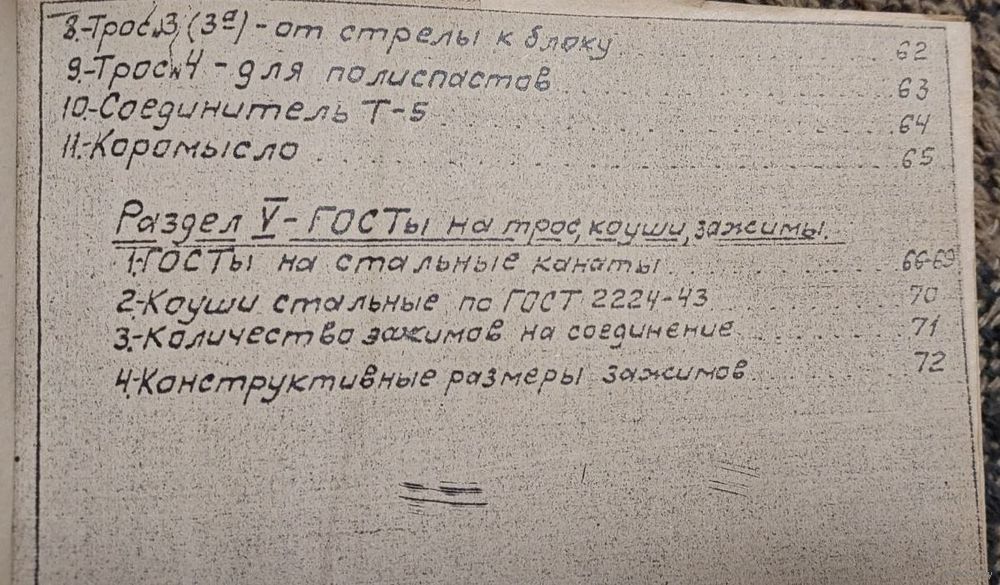 8.-Трос №3 (3ª) - от стрелы к блоку 62
9.-Трос №4 - для полиспастов 63
10.-Соединитель Т-5 64
11.-Коромысло 65
Раздел V - ГОСТы на трос, коуши, зажимы.
1.-ГОСТы на стальные канаты 66-69
2.-Коуши стальные по ГОСТ 2224-43 70
3.-Количество зажимов на соединение 71
4.-Конструктивные размеры зажимов 72